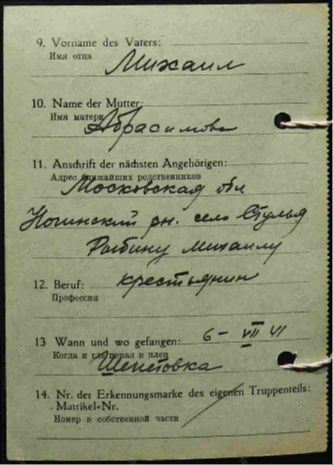 9. Vorname des Vaters:
Имя отца
Михаил
10. Name der Mutter:
Имя матери
Абрасимова
11. Anschrift der nächsten Angehörigen:
Адрес ближайших родственников
Московская обл
Ногинский рн. село
Рыбину Михаилу
12. Beruf:
крестьянин
Профессия
13 Wann und wo gefangen:
6- VII 41
Когда и где попал в плен
Шепетовка
14. Nr. der Erkennungsmarke des eigenen Truppenteils:
Matrikel-Nr.
Номер в собственной части